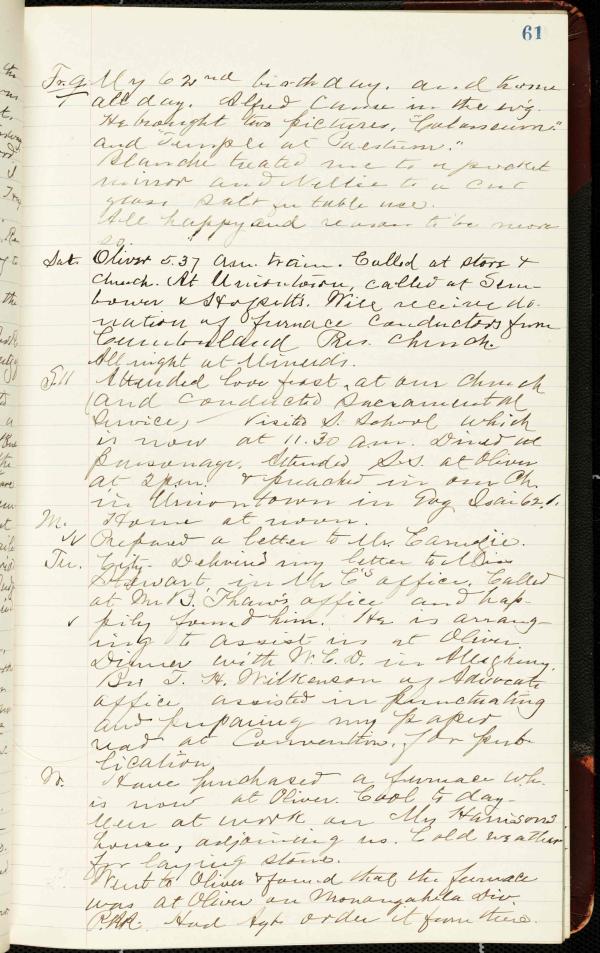 61
Fr. 9 My 62nd birthday. and home
all day. Alfred Came in the ev'g.
He brought two pictures, "Colosseum"
and "Temple at Paestum."
Blanche treated me to a pocket
mirror and Nellie to a cut
glass salt for table use.
All happy and reason to be more
so.
Sat. Oliver 5.37 a.m. train. Called at store &
church. At Uniontown, called at Sem-
bower & Hopetts. Will receive do-
nation of furnace conductors from
Cumberland Pres. Church.
All night at
S. 11 Attended love feast at our church
(and conducted Sacramental
Service,) Visited S. School which
is now at 11.30 a.m. Dined at
parsonage. Attended S.S. at Oliver
at 2 p.m. & preached in our Ch.
in Uniontown in Evg Isai 62.1.
M. Home at noon.
Prepared a letter to Mr. Carnegie.
Tu. City. Delivered my letter to Miss
Stewart in Mr C's office. Called
at Mr B. Thaw's office and hap-
pily found him. He is arrang-
ing to assist us at Oliver.
Dinner with W.C.D. in Allegheny.
Bro J. H. Wilkenson of Advocate
office assisted in punctuating
and preparing my paper
read at Convention, for pub-
lication.
W. Have purchased a furnace wh.
is now at Oliver. Cool to day.
Men at work on Mr Harrison's
house, adjoining us. Cold weather
for laying stone.
Went to Oliver & found that the furnace
was at Oliver on Monongahela div.
P.R.R. Had Agt order it from there.